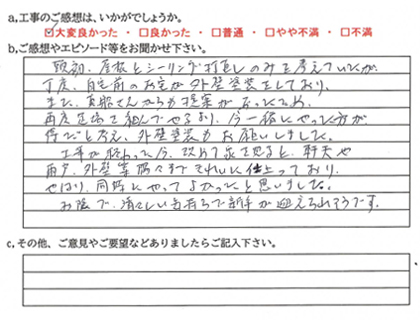 a,工事のご感想は、いかがでしょうか。
☑大変良かった ・ □良かった ・ □普通 ・ □やや不満 ・ □不満
b,ご感想やエピソード等をお聞かせ下さい。
当初、屋根とシーリング打直しのみを考えていたが、
丁度、自宅前のお宅が外壁塗装をしており、
また、真船さんからも提案があったため、
再度足場を組んでやるより、今一緒にやった方が
得だと考え、外壁塗装もお願いしました。
工事が終わった今、改めて家を見ると、軒天や
雨戸、外壁等隅々まできれいに仕上っており、
やはり、同時にやってよかったと思いました。
お陰で、清々しい気持ちで新年が迎えられそうです。
c,その他、ご意見やご要望などありましたらご記入下さい。